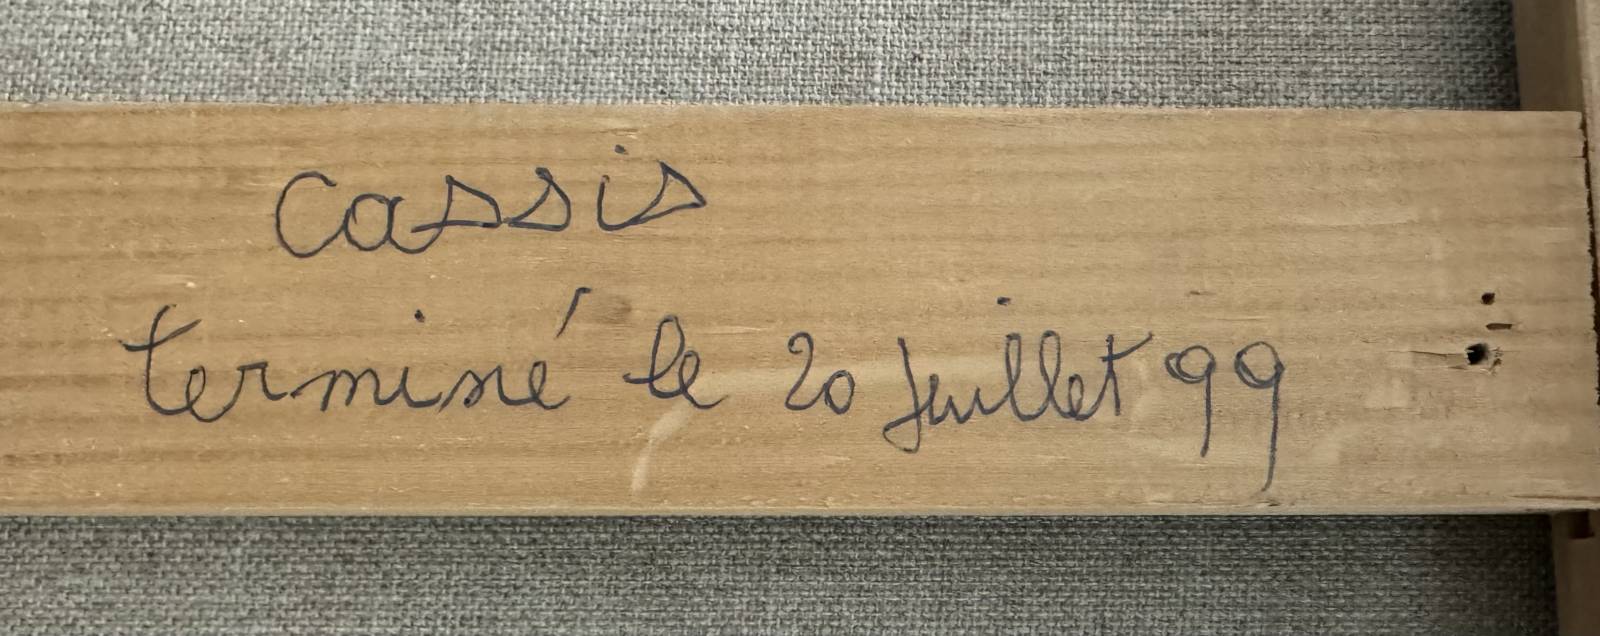 Cassis
terminé le 20 juillet 99